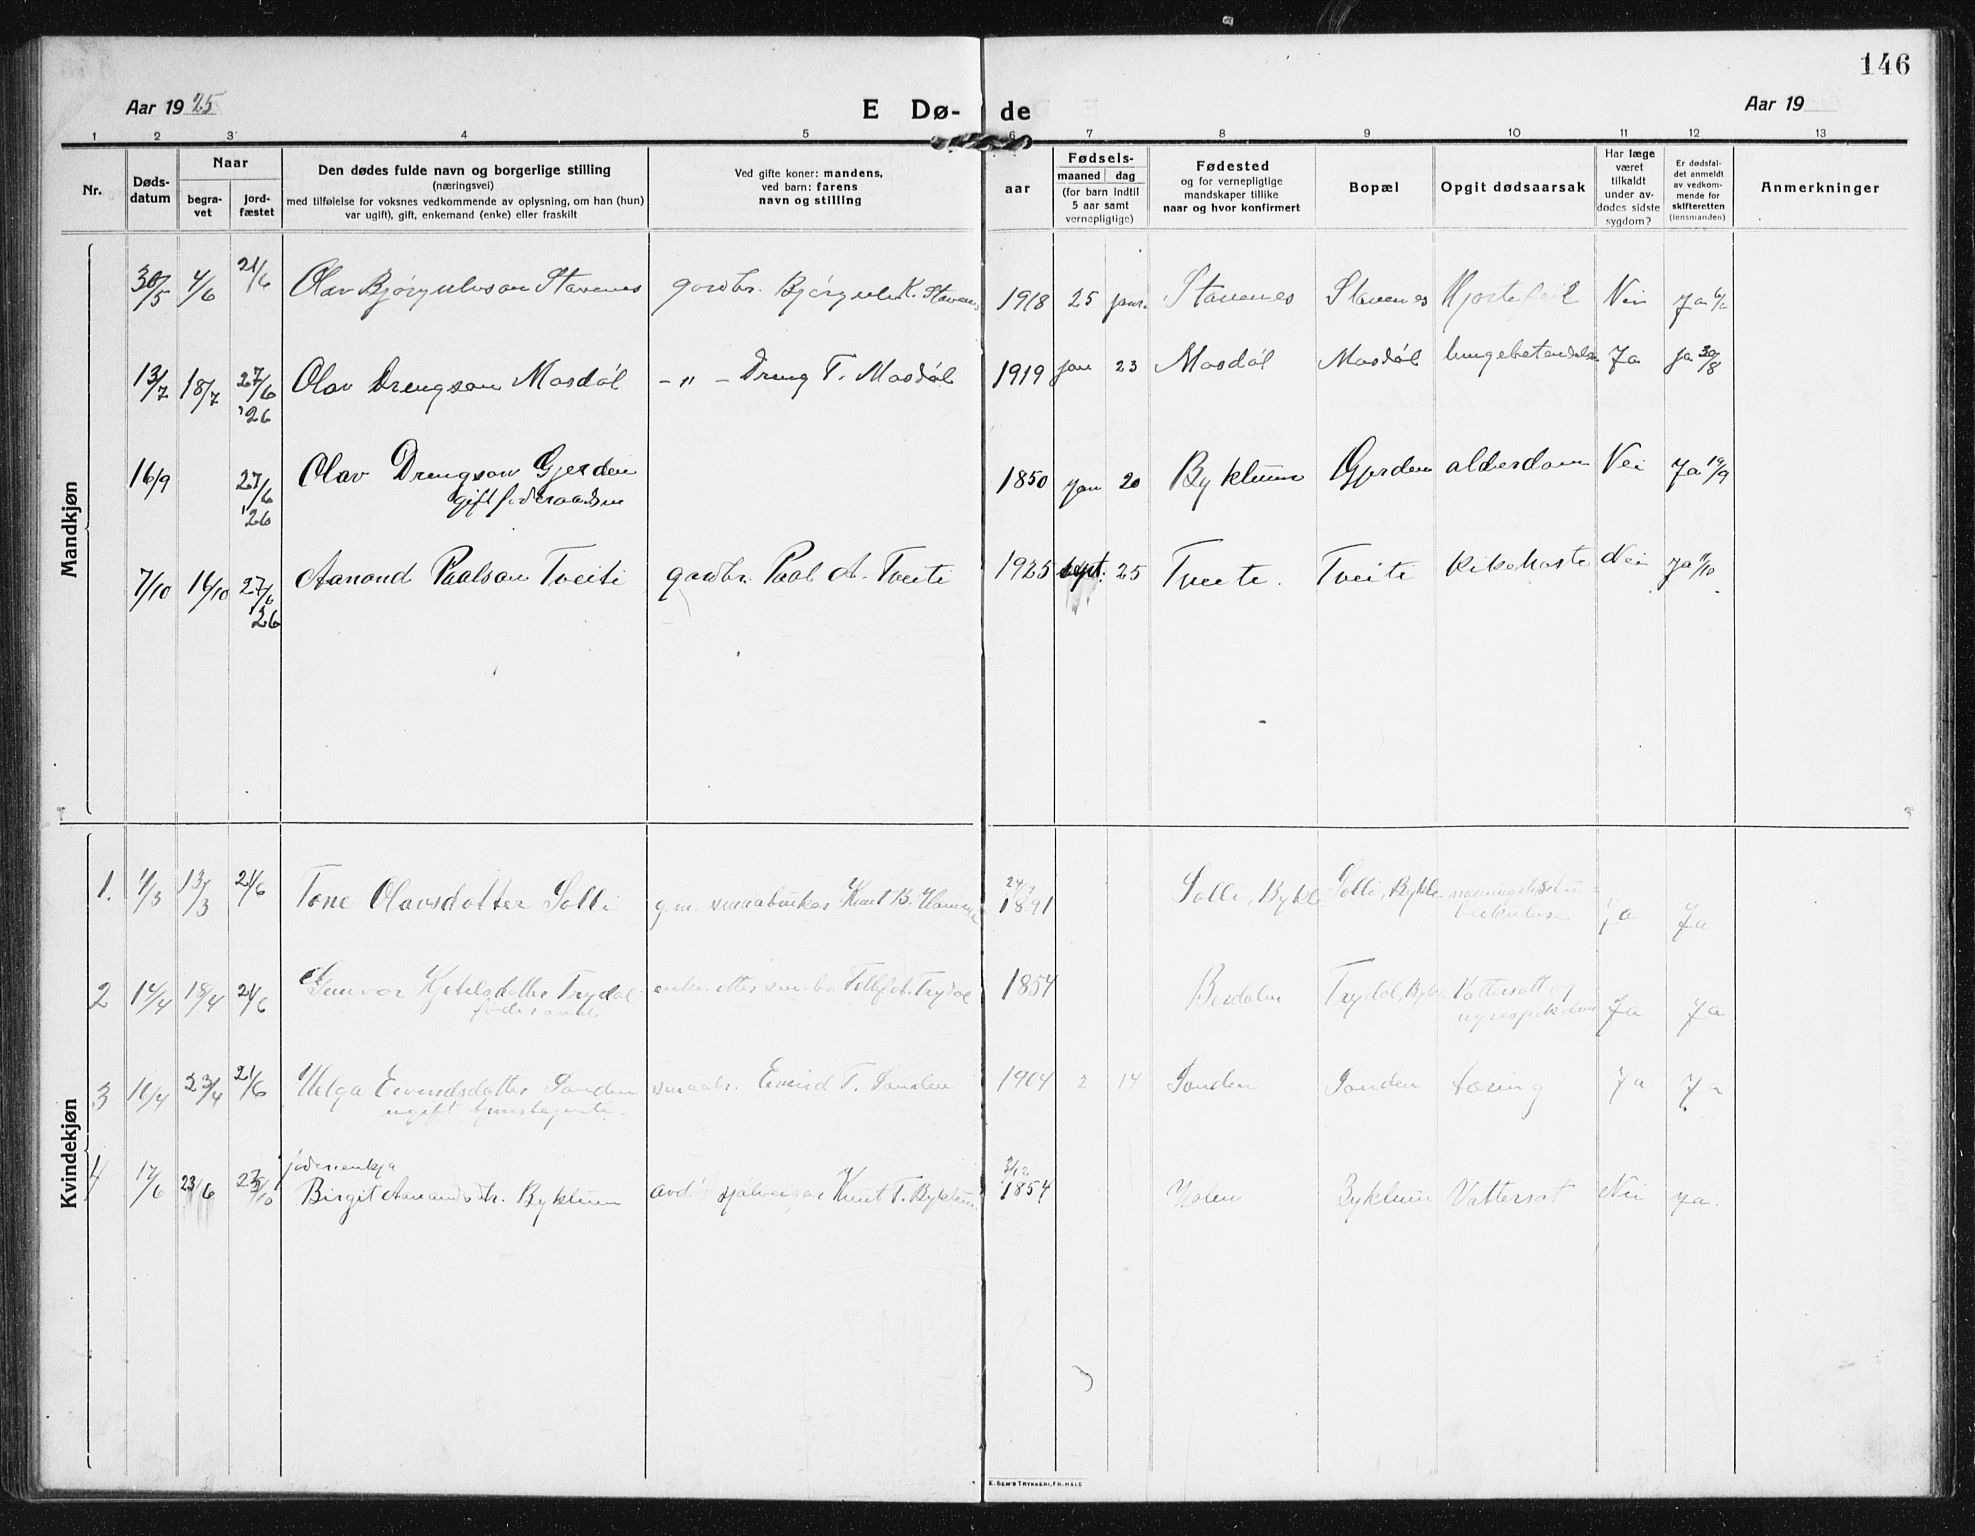 146
Aar 1925
E Dø-
de
Aar 19
1 2 3 4 5 6 7 8 9 10 11 12 13
Nr.
Døds-
datum
Naar
begra-
vet
jord-
fæstet
Den dødes fulde navn og borgerlige stilling
(næringsvei)
med tilføielse for voksnes vedkommende av oplysning, om han (hun)
var ugift), gift, enkemand (enke) eller fraskilt
Ved gifte koner: mandens,
ved barn: farens
navn og stilling
aar
Fødsels-
maaned dag
(for barn indtil
5 aar samt
vernepligtige)
Fødested
og for vernepligtige
mandskaper tillike
naar og hvor konfirmert
Bopæl
Opgit dødsaarsak
Har læge
været
tilkaldt
under av-
dødes sidste
sygdom?
Er dødsfal-
det anmeldt
av vedkom-
mende for
skifteretten
(lensmanden)
Anmerkninger
Mandkjøn
30/5 4/6 21/6 Olav Bjørgulvson Stavenes gardbr. Bjørgulv K. Stavenes 1918 25 janr. Stavenes Stavenes Hjortefeil Nei Ja
13/7 18/7 27/6 '26 Olav Drengson Mosdøl -"- Dreng T. Mosdøl 1919 jan 23 Mosdøl Mosdøl lungebetændelse Ja ja 30/8
16/9 27/6 '26 Olav Drengson Gjerden 1850 Jan 20 Byklum Gjerden alderdom Nei Ja 19/9
gift føderaadsm
7/10 16/10 27/6 '26 Aanond Paalson Tveiti gardbr. Paal A. Tveiti 1925 sept. 25 Tveite. Tveiti Kikehoste Nei Ja
Kvindekjøn
1. 1/3 13/3 21/6 Tone Olavsdotter Solli g.m. smaabruker Knut B. 1891 Solli, Bykle Solli, Bykle Ja Ja
2 14/4 18/4 21/6 Gunvor Kjetilsdotter Trydal enke etter 1854 Berdalen Trydal, Bykle Vattersott og Ja Ja
føderaad
3 16/4 23/4 21/6 Helga Eivendsdotter Sanden smaabr. Eivind T. Sanden 1904 2 14 Sanden Sanden tæring Ja Ja
ugift
4 17/6 23/6 føderenkja
Birgit Aanandsdtr. Byklum avd. sjølveigar Knut T. Byklum 3/12 1854 Hølen Byklum Vattersot Nei ja.
E. SEM'S TRYKKERI, FR.HALD